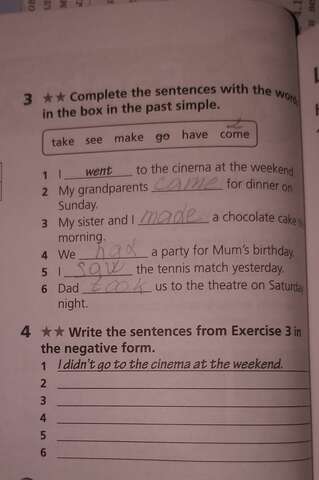 3 ★★ Complete the sentences with the words
in the box in the past simple.
take see make go have come
1 I went to the cinema at the weekend.
2 My grandparents came for dinner on
Sunday.
3 My sister and I made a chocolate cake
morning.
4 We had a party for Mum's birthday.
5 I saw the tennis match yesterday.
6 Dad took us to the theatre on Saturday
night.
4 ★★ Write the sentences from Exercise 3 in
the negative form.
1 I didn't go to the cinema at the weekend.
2
3
4
5
6